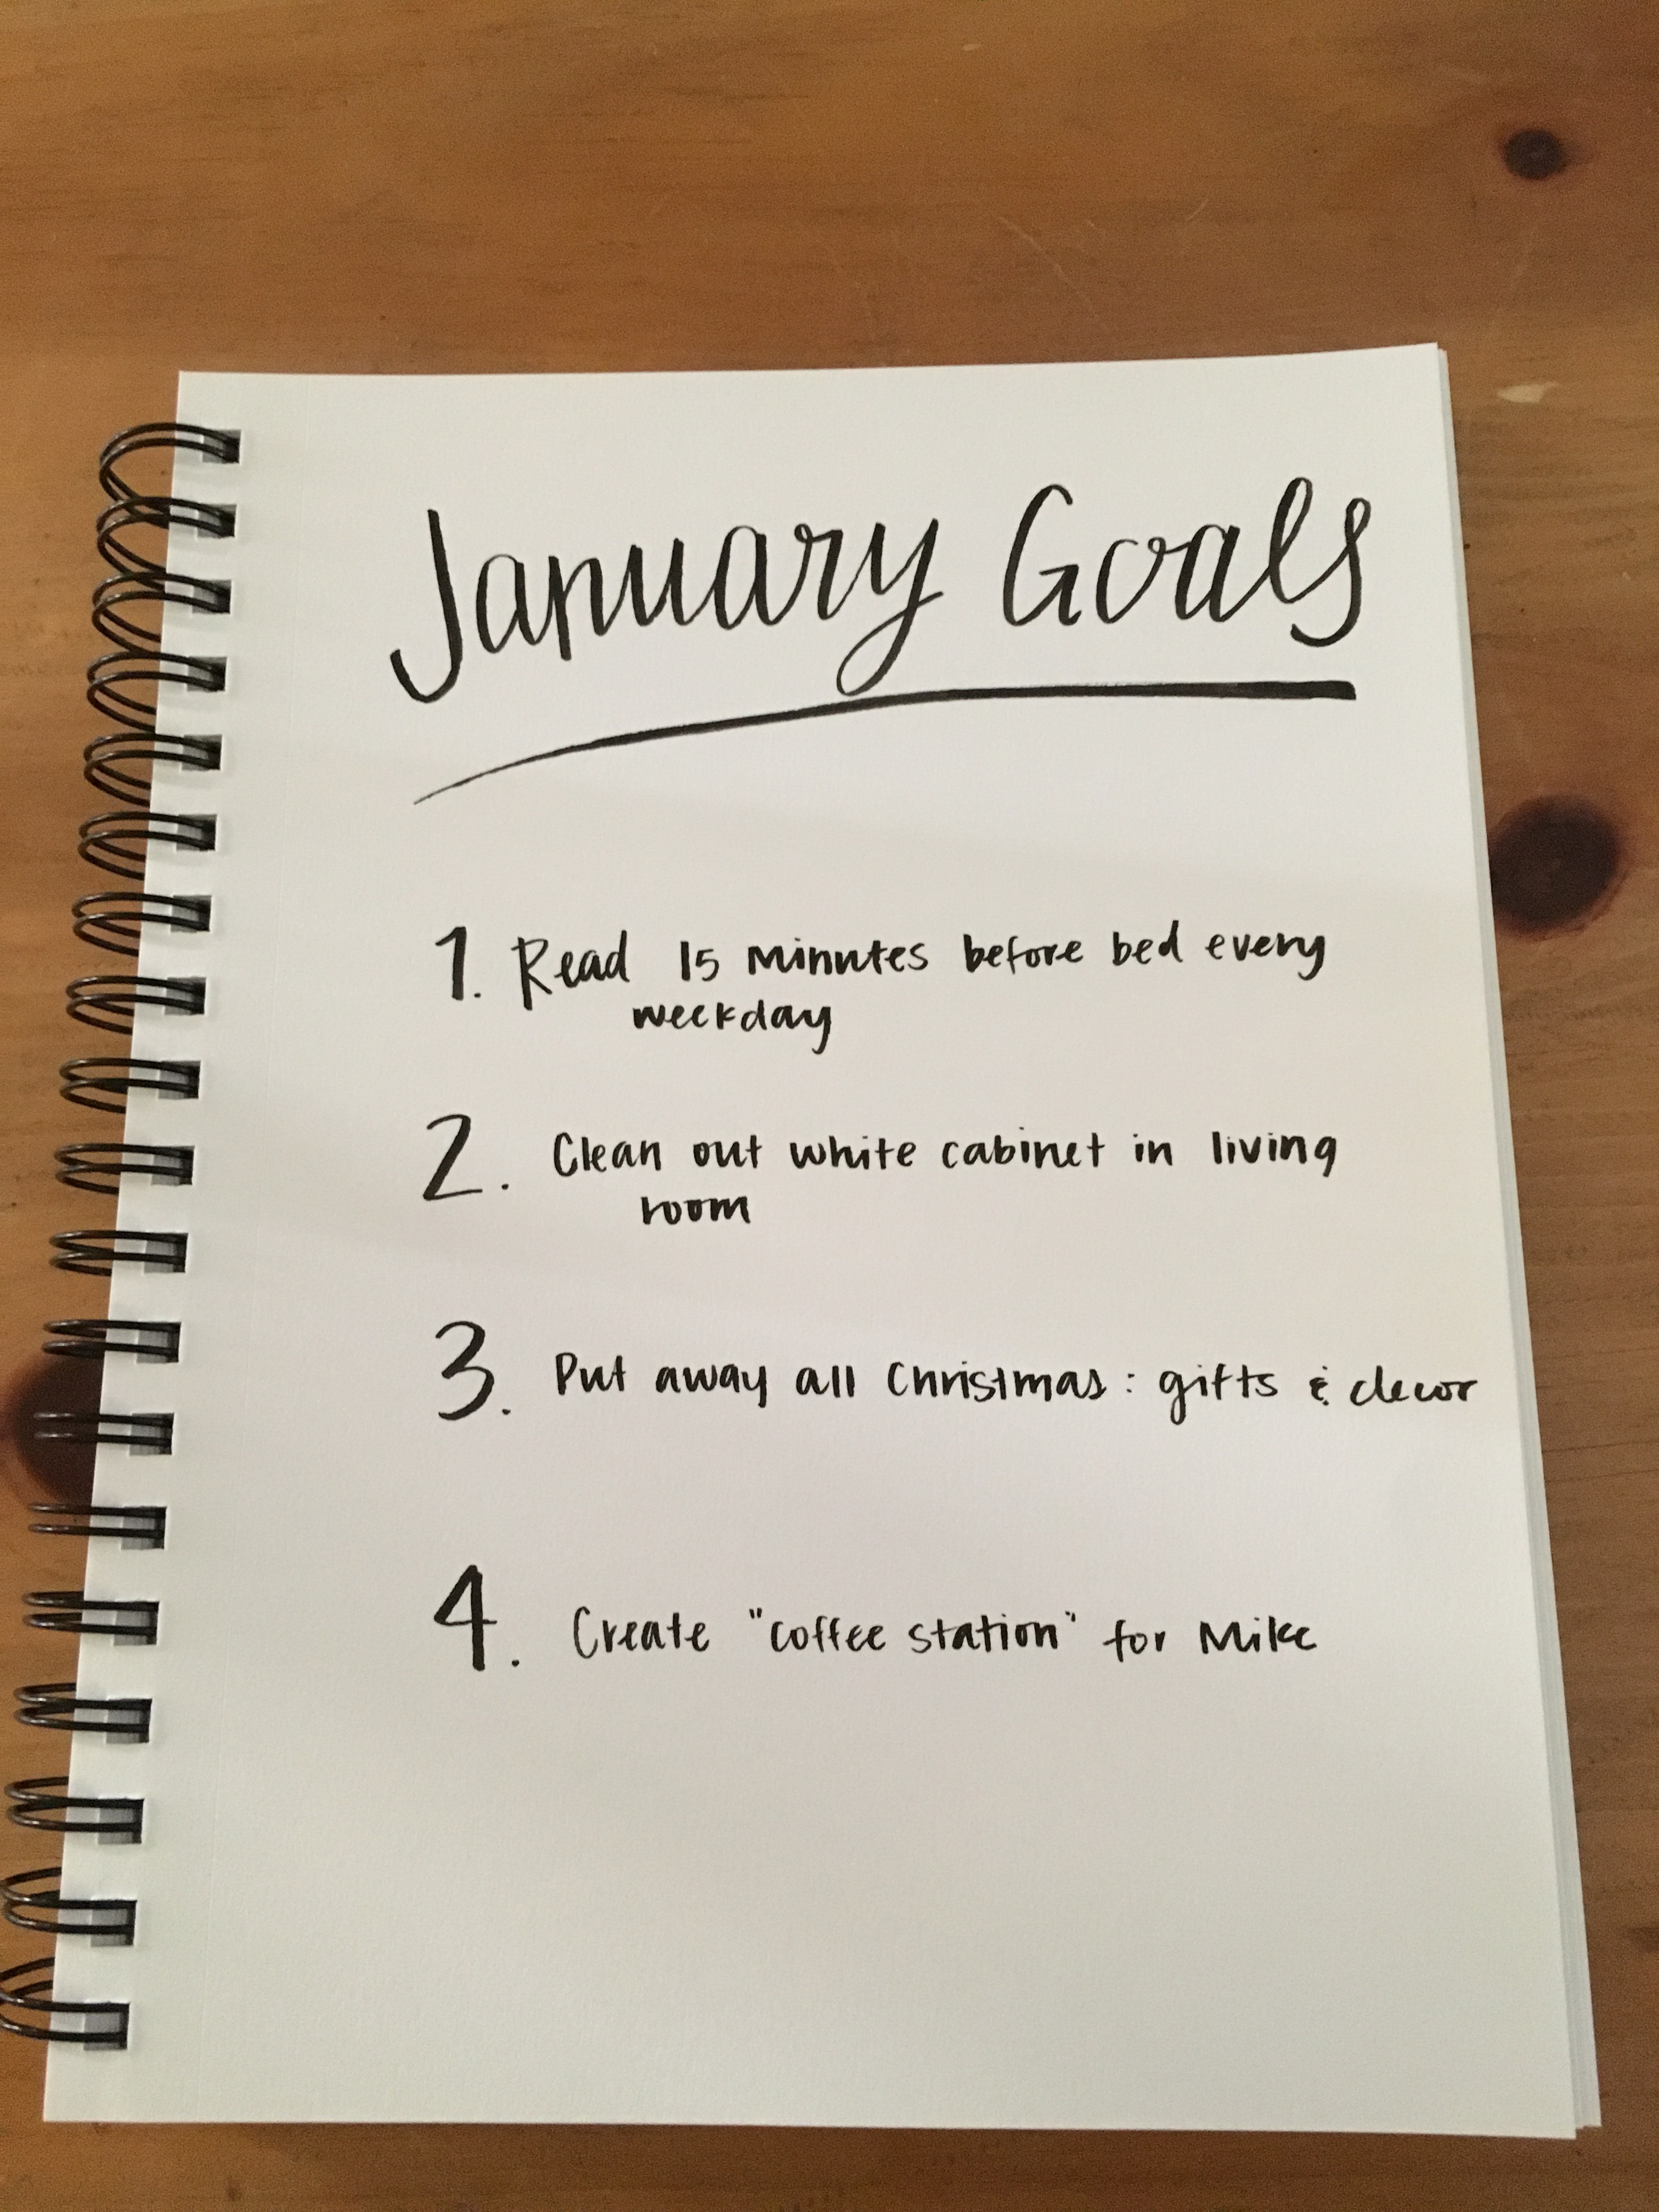 January Goals
1. Read 15 minutes before bed every
weekday
2. Clean out white cabinet in living
room
3. Put away all Christmas: gifts & decor
4. Create "coffee station" for Mike